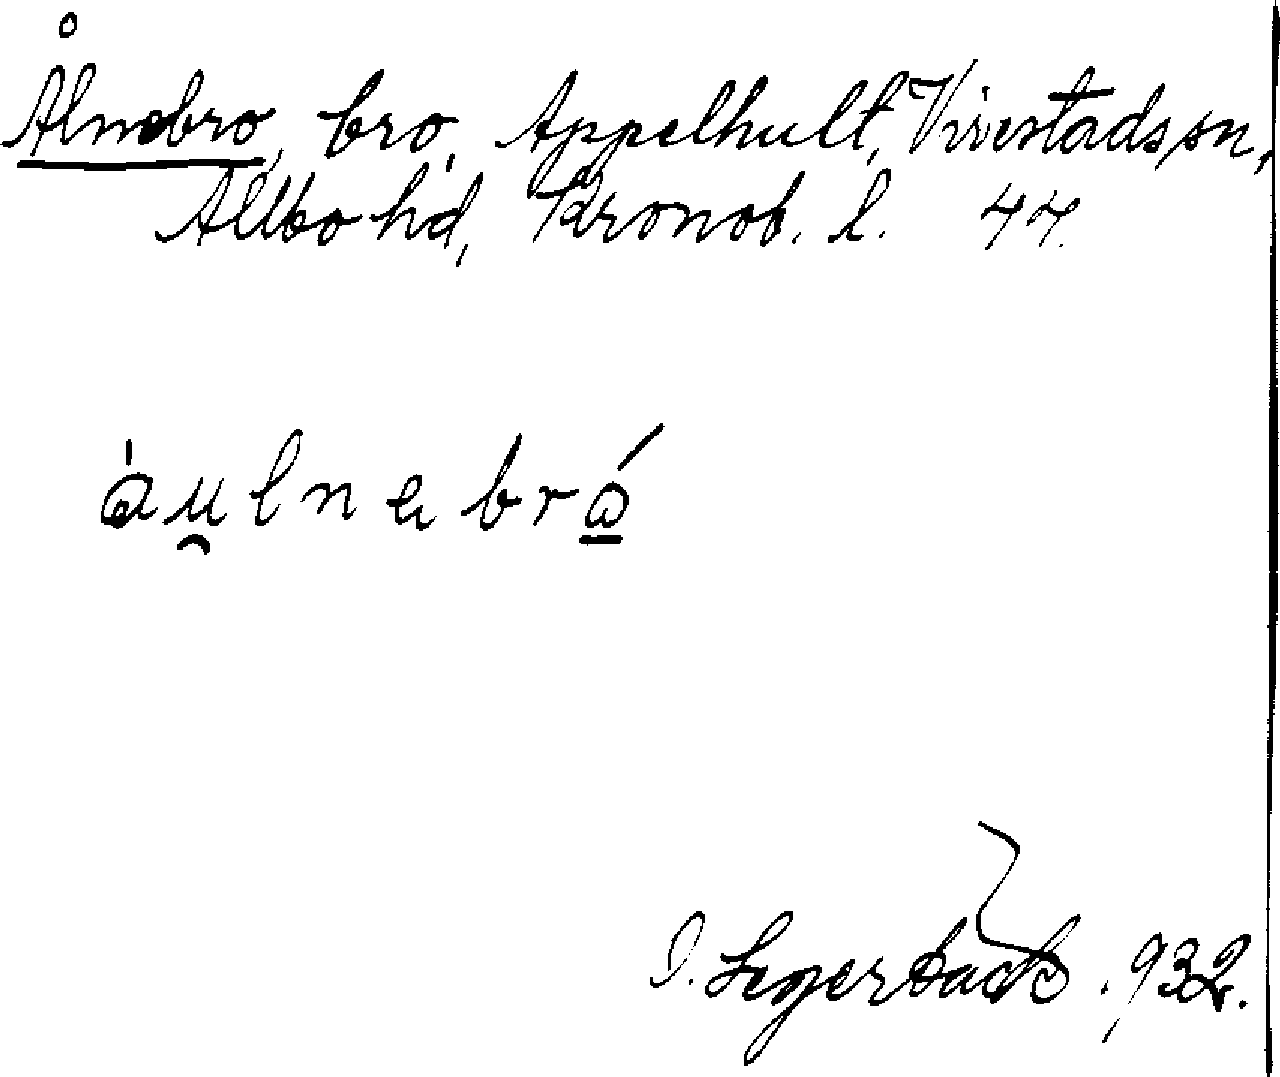 Ålnebro, bro, Appelhult, Virestads sn,
Allbo hd, Kronob. l. 47.
a̍u̯lnebrǿ
I. Segerbäck. 1932.